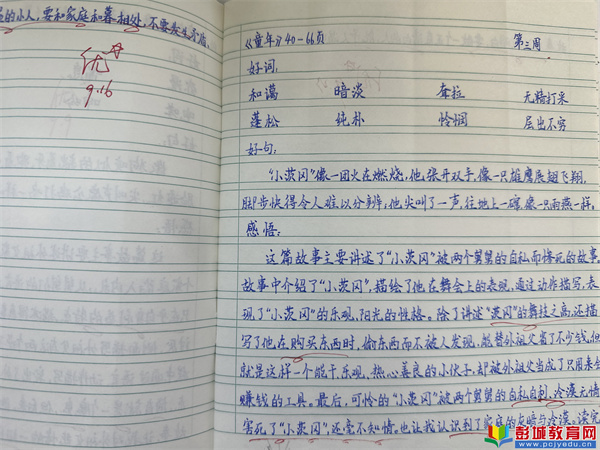 的小人,要和家庭和暮相处,不要发生矛盾.
优
9.16
《童年》40-66页
第三周
好词:
和蔼 暗淡 耷拉 无精打采
蓬松 纯朴 怜悯 层出不穷
好句:
“小茨冈”像一团火在燃烧,他张开双手,像一只雄鹰展翅飞翔,
脚步快得令人难以分辨,他尖叫了一声,往地上一蹲,像一只雨燕一样。
感悟:
这篇故事主要讲述了“小茨冈”被两个舅舅的自私而惨死的故事,
故事中介绍了“小茨冈”,描绘了他在舞会上的表现,通过动作描写,表
现了“小茨冈”的乐观,阳光的性格。除了讲述“茨冈”的舞技之高,还描
写了他在购买东西时,偷东西而不被人发现,能替外祖父省了不少钱,但
就是这样一个能干,乐观,热心善良的小伙子,却被外祖父当成了只用来
赚钱的工具。最后,可怜的“小茨冈”被两个舅舅的自私自利,冷漠无情
害死了“小茨冈”,还毫不知情.也让我认识到了家庭的灰暗与冷漠。读完
彭城教育网
www.pcjyedu.com